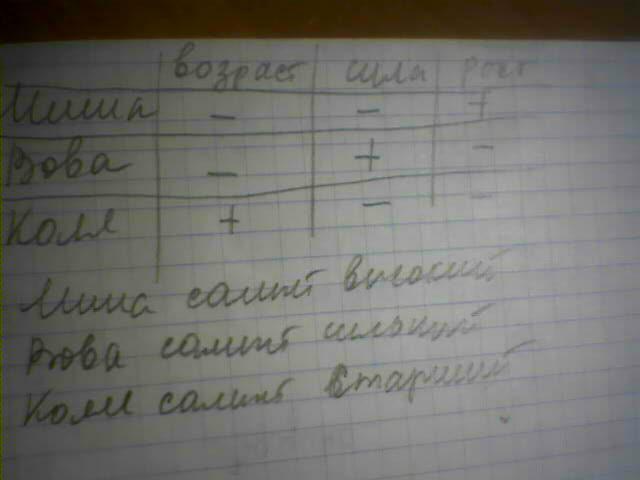 возраст сила рост
Миша - - +
Вова - + -
Коля + - -
Миша самый высокий
Вова самый сильный
Коля самый старший